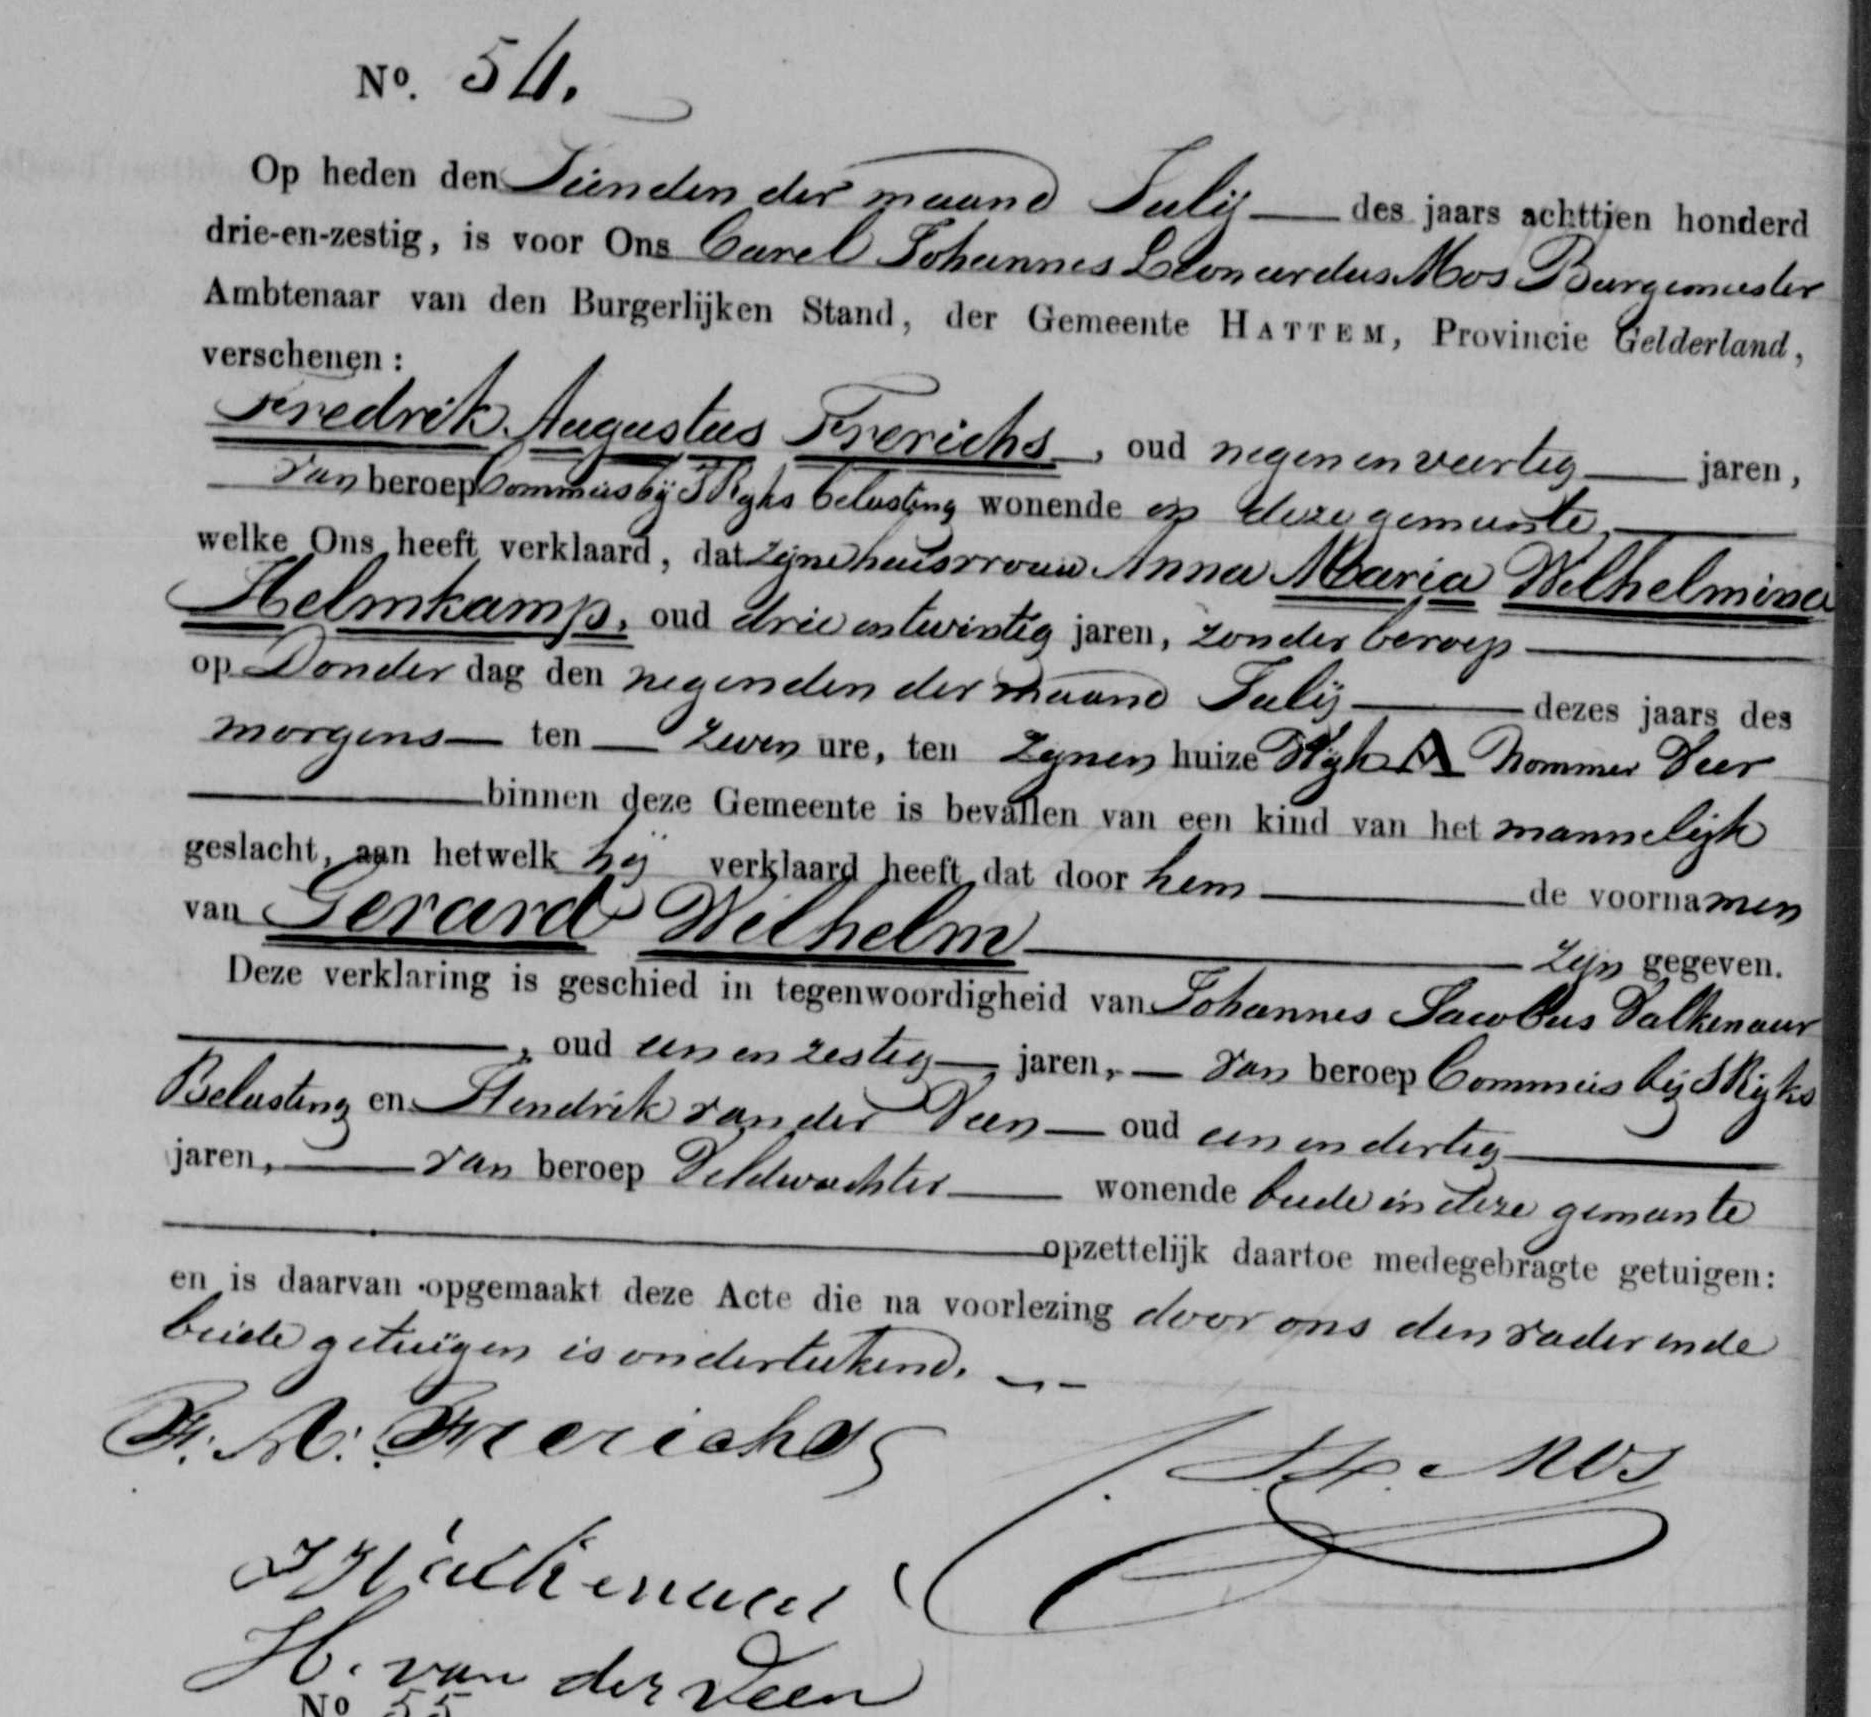 No. 54.
Op heden den Tienden der maand Julij des jaars achttien honderd
drie-en-zestig, is voor Ons Carel Johannes Leonardus Mos Burgemeester
Ambtenaar van den Burgerlijken Stand, der Gemeente HATTEM, Provincie Gelderland,
verschenen:
Fredrik Augustus Frerichs, oud negen en veertig jaren,
van beroep Commies bij 'S Rijks belasting wonende in deze gemeente,
welke Ons heeft verklaard, dat zijne huisvrouw Anna Maria Wilhelmina
Helmkamp, oud drie en twintig jaren, zonder beroep
op Donder dag den negenden der maand Julij dezes jaars des
morgens ten zeven ure, ten zijnen huize Wijk A Nommer Vier
binnen deze Gemeente is bevallen van een kind van het mannelijk
geslacht, aan hetwelk hij verklaard heeft dat door hem de voornamen
van Gerard Wilhelm zijn gegeven.
Deze verklaring is geschied in tegenwoordigheid van Johannes Jacobus Valkenaar
, oud een en zestig jaren, van beroep Commies bij 'S Rijks
Belasting en Hendrik van der Veen oud een en dertig
jaren, van beroep Veldwachter wonende beide in deze gemeente
opzettelijk daartoe medegebragte getuigen:
en is daarvan opgemaakt deze Acte die na voorlezing door ons den vader en de
beide getuigen is onderteekend.
F. A. Frerichs
Mos
Valkenaar
H. van der Veen
No 55